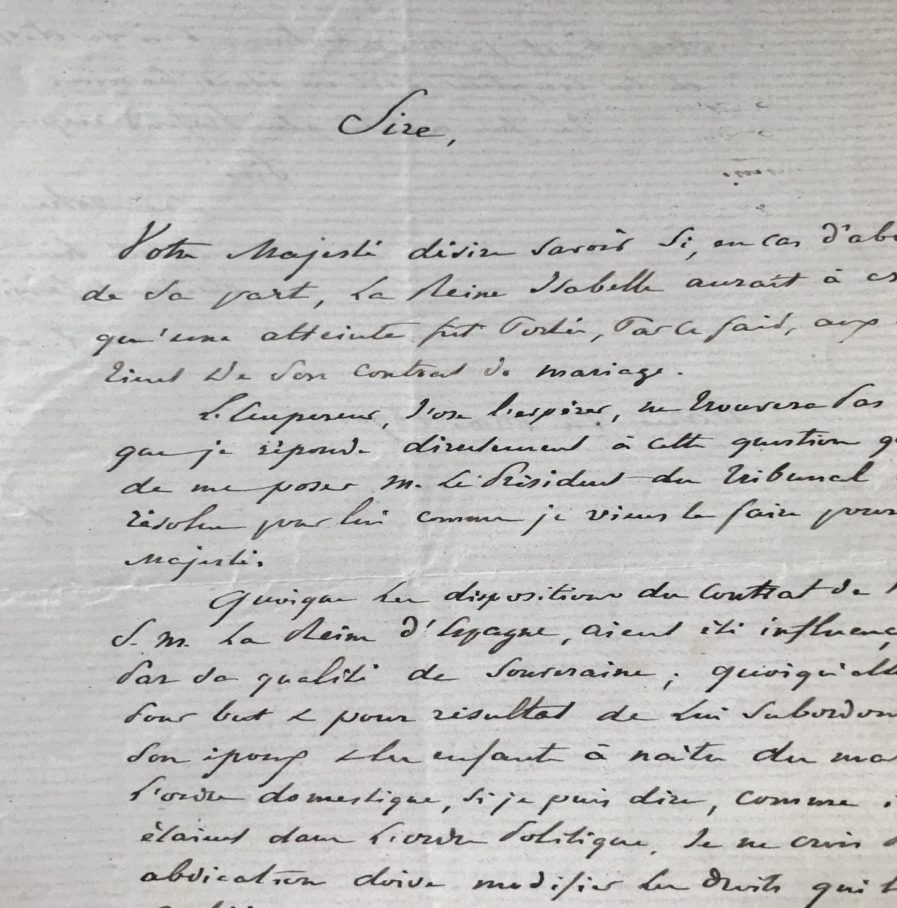 Sire,
Votre Majesté désire savoir si, en cas d'ab
de sa part, la Reine Isabelle aurait à
qu'une atteinte fut portée, par ce fait, aux
tient de son contrat de mariage.
L'Empereur, j'ose l'espérer, ne trouvera pas
que je réponde directement à cette question
de me poser M. Le Président du Tribunal
résolue pour lui comme je viens le faire pour
Majesté.
Quoique les dispositions du contrat de
S. M. La Reine d'Espagne, aient été influenc
par sa qualité de Souveraine ; quoiqu'elle
pour but & pour résultat de lui subordon
son époux & les enfants à naître du ma
l'ordre domestique, si je puis dire, comme i
étaient dans l'ordre politique, Je ne crois
abdication doive modifier les droits qui